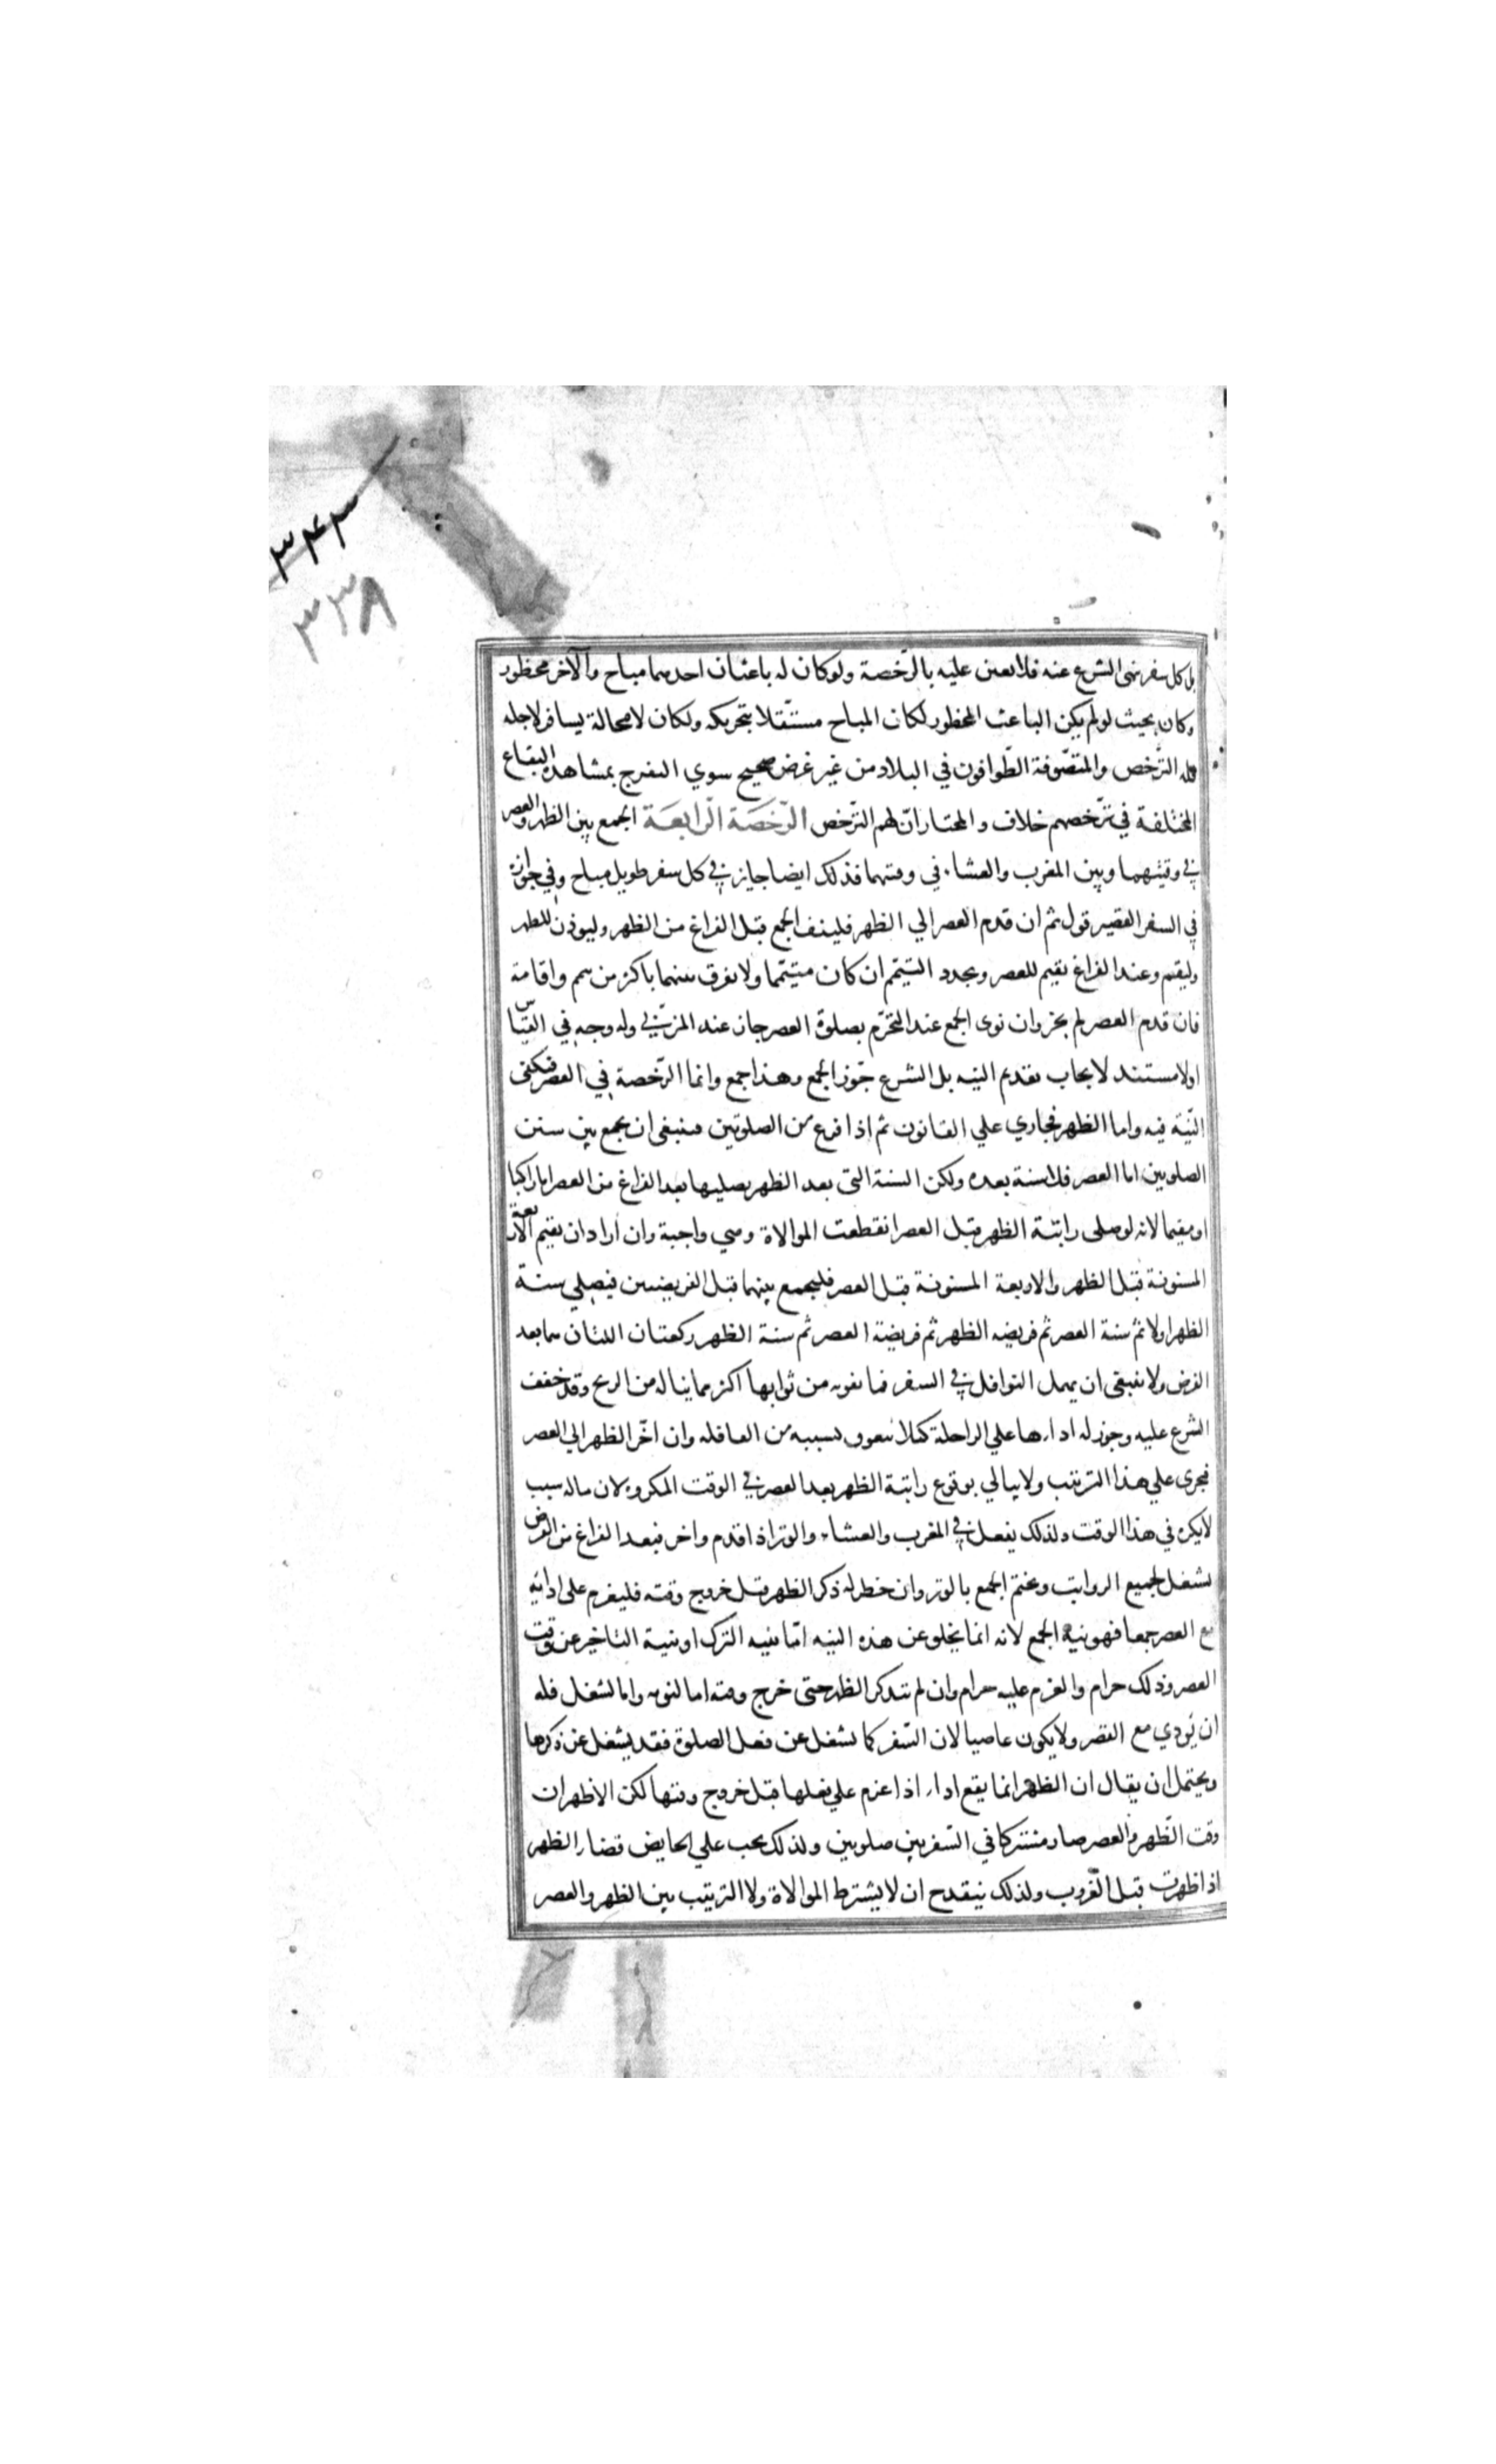 ۳۴۳
۳۳۸
بل كل سفر نهى الشرع عنه فلا يعين عليه بالرّخصة ولو كان له باعثان احدهما مباح والآخر محظور
وكان بحيث لو لم يكن الباعث المحظور لكان المباح مستقلا بتحريكه ولكان لا محالة يسافر لاجله
فله الترّخص والمتصّوفة الطّوافون في البلاد من غير غرض صحيح سوي التفرج بمشاهدة البقاع
المختلفة في ترّخصهم خلاف والمختار انّ لهم الترّخص الرّخصَة الرّابعَة الجمع بين الظهر والعصر
في وقتيهما وبين المغرب والعشاء في وقتهما فذلك ايضا جايز في كل سفر طويل مباح وفي جوازه
في السفر القصير قول ثم ان قدم العصر الي الظهر فلينف الجمع قبل الفراغ من الظهر وليوذن للظهر
وليقم وعند الفراغ يقيم للعصر ويجدد التيتم ان كان متيتما ولا يفرق بينهما باكثر من تيمم واقامة
فان قدم العصر لم يجز وان نوى الجمع عند التحرّم بصلوة العصر جاز عند المزنيّ وله وجه في القيّاس
اولا مستند لايجاب تقديم النيه بل الشرع جّوز الجمع وهذا جمع وانما الرّخصة في العصر فتكفى
النيّة فيه واما الظهر فجاري علي القانون ثم اذا فرغ من الصلوتين فينبغى ان يجمع بين سنن
الصلوتين اما العصر فلا سنة بعده ولكن السنة التى بعد الظهر يصليها بعد الفراغ من العصر اما راكبا
او مقيما لانه لو صلى راتبة الظهر قبل العصر انقطعت الموالاة وهي واجبة وان اراد ان يقيم الاربعة
المسنونة قبل الظهر والاربعة المسنونة قبل العصر فليجمع بينهما قبل الفريضتين فيصلي سنة
الظهر اولا ثم سنة العصر ثم فريضه الظهر ثم فريضة العصر ثم سنة الظهر ركعتان اللتان هما بعد
الفرض ولا ينبغى ان يهمل النوافل في السفر فما يفوته من ثوابها اكثر مما يناله من الربح وقد خفف
الشرع عليه وجوز له اداءها علي الراحلة كيلا يتعوق بسببه من القافله وان اخّر الظهر الي العصر
فيجرى علي هذا الترتيب ولا يبالي بوقوع راتبة الظهر بعد العصر في الوقت المكروه لان ماله سبب
لا يكره في هذا الوقت وكذلك يفعل في المغرب والعشاء والوتر اذا قدم واخر فبعد الفراغ من الفرض
يشغل لجميع الرواتب ويختم الجمع بالوتر وان خطر له ذكر الظهر قبل خروج وقته فليعزم على ادائه
مع العصر جمعا فهو نية الجمع لانه انما يخلو عن هذه النيه امّا بنيه الترك او نية التاخير عن وقت
العصر وذلك حرام والعزم عليه حرام وان لم يتذكر الظهر حتى خرج وقته اما لنوم واما لشغل فله
ان يّودي مع القصر ولا يكون عاصيا لان السّفر كما يشغل عن فعل الصلوة فقد يشغل عن ذكرها
ويحتمل ان يقال ان الظهر انما يقع اداء اذا عزم علي فعلها قبل خروج وقتها لكن الاظهر ان
وقت الظّهر والعصر صار مشتركا في السّفر بين صلوتين ولذلك يجب علي الحايض قضاء الظهر
اذا ظهرت قبل الغروب ولذلك ينقدح ان لا يشترط الموالاة ولا الترتيب بين الظهر والعصر